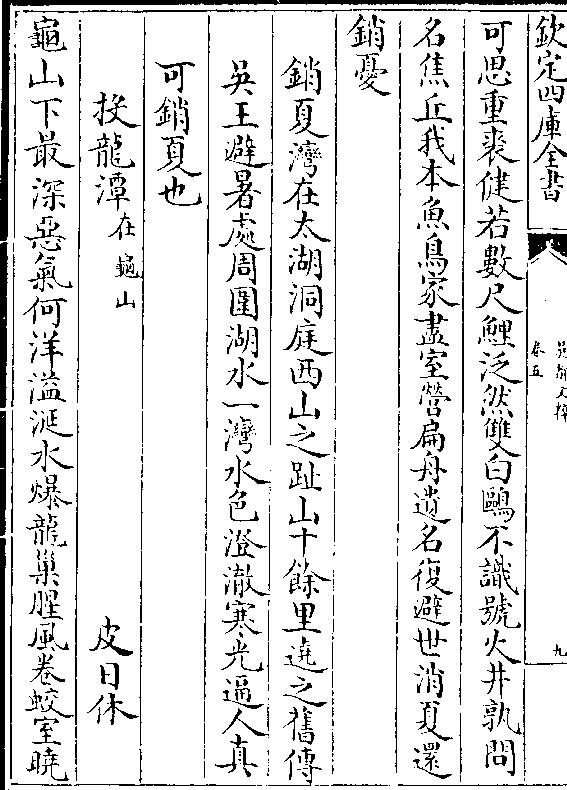 欽定四庫全書
卷五
九
可思重裘健若數尺鯉泛然雙白鷗不識號火井孰問
名焦丘我本魚鳥家盡室營扁舟遺名復避世消夏還
銷憂
銷夏灣在太湖洞庭西山之趾山十餘里遶之舊傳
吳王避暑處周圍湖水一灣水色澄澈寒光逼人真
可銷夏也
投龍潭在龜山 皮日休
龜山下最深惡氣何洋溢涎水爆龍巢腥風卷蛟室曉